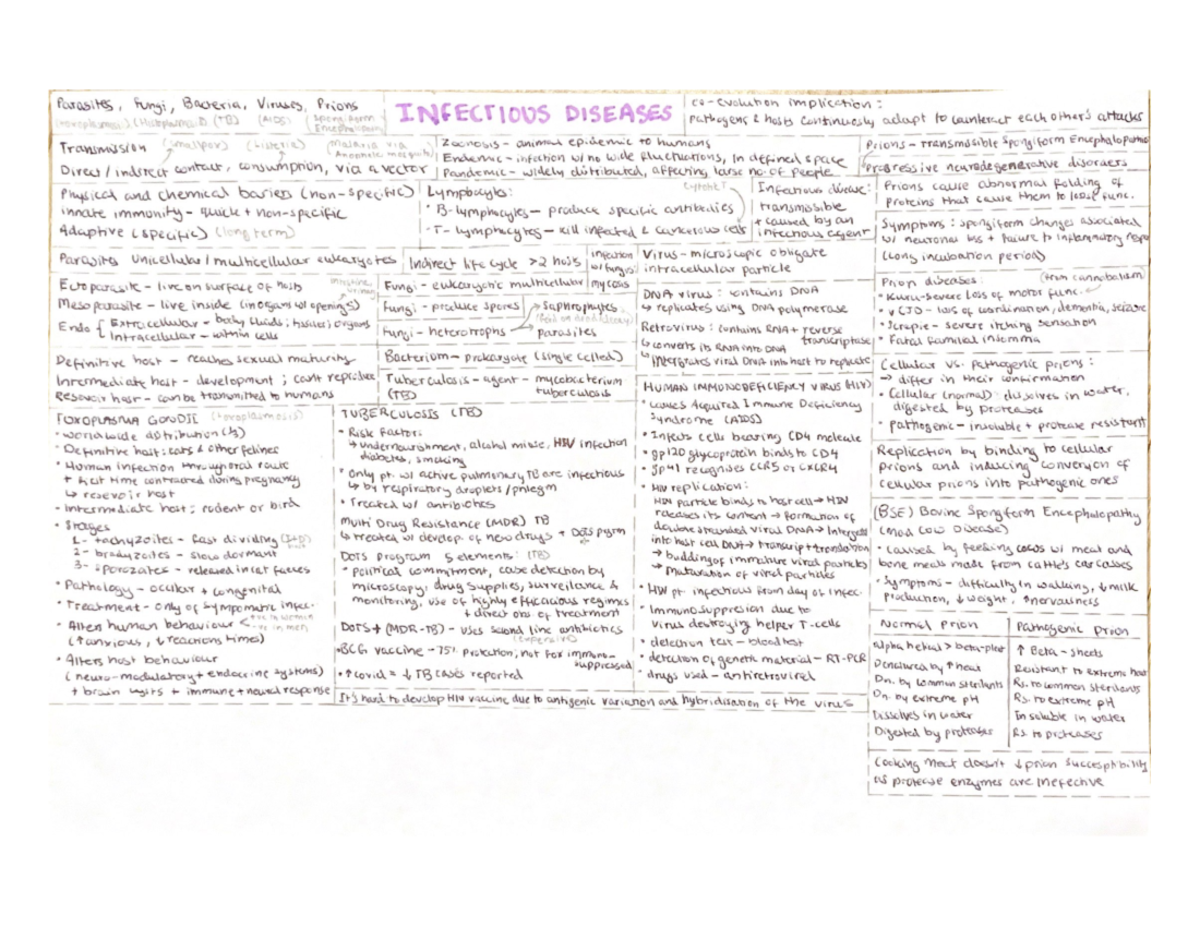 Parasites, Fungi, Bacteria, Viruses, Prions
(Toxoplasmosis) (Histoplasmosis) (TB) (AIDS) (Spongiform Encephalopathy)
INFECTIOUS DISEASES
co-evolution implication:
pathogens & hosts continuously adapt to counteract each other's attacks
Transmission (smallpox) (Listeria) (Malaria via Anopheles mosquito)
Direct/indirect contact, consumption, via a vector
Zoonosis - animal epidemic to humans
Endemic - infection w/ no wide fluctuations, in defined space
Pandemic - widely distributed, affecting large no. of people
Prions - Transmissible Spongiform Encephalopathies
Progressive neurodegenerative disorders
Physical and chemical bariers (non-specific)
innate immunity - quick + non-specific
Adaptive (specific) (long term)
Lymphocytes:
• B-lymphocytes - produce specific antibodies
• T-lymphocytes - kill infected & cancerous cells
Infectious disease:
transmissible
+ caused by an
infectious agent
Prions cause abnormal folding of
proteins that cause them to loose func.
Symptoms: spongiform changes associated
w/ neuronal loss + failure to inflammatory
(long incubation period)
Parasite Unicellular/multicellular eukaryotes
Indirect life cycle >2 hosts
infection
w/ fungi:
mycosis
Virus - microscopic obligate
intracellular particle
Ectoparasite - live on surface of hosts
Mesoparasite - live inside (in organs w/ openings)
Endo { Extracellular - body fluids; tissues; organs
Intracellular - within cells
Fungi - eukaryotic multicellular
Fungi - produce spores
Fungi - heterotrophs
saphrophytes
parasites
DNA virus: contains DNA
↳ replicates using DNA polymerase
Retrovirus: contains RNA + reverse
transcriptase
↳ converts its RNA into DNA
↳ intergrates viral DNA into host to replicate
Prion diseases: (from cannabolism)
• Kuru - severe loss of motor func.
• vCJD - loss of coordination, dementia, seizure
• Scrapie - severe itching sensation
• Fatal familial insomnia
Definitive host - reaches sexual maturity
Intermediate host - development; can't reproduce
Resevoir host - can be transmitted to humans
Bacterium - prokaryote (single celled)
Tuberculosis - agent - mycobacterium
(TB) tuberculosis
Cellular vs. Pathogenic prions:
→ differ in their confirmation
• Cellular (normal) dissolves in water,
digested by proteases
• pathogenic - insoluble + protease resistant
TOXOPLASMA GONDII (toxoplasmosis)
• worldwide distribution (⅓)
• Definitive host: cats & other felines
• Human infection through oral route
+ first time contracted during pregnancy
↳ resevoir host
• Intermediate host: rodent or bird
• Stages
1- tachyzoites - fast dividing
2- bradyzoites - slow dormant
3- sporozoites - released in cat faeces
• Pathology - ocular + congenital
• Treatment - only of symptomatic infec.
• Alters human behaviour < +ve in women
-ve in men
(↑ anxious, ↓ reactions times)
• Alters host behaviour
(neuro-modulatory + endocrine systems)
+ brain cysts + immune + neural response
TUBERCULOSIS (TB)
• Risk factor:
↳ undernourishment, alcohol misuse, HIV infection
diabetes, smoking
• Only pt. w/ active pulmonary TB are infectious
↳ by respiratory droplets/phlegm
• Treated w/ antibiotics
Multi Drug Resistance (MDR) TB
↳ treated w/ develop. of new drugs + DOTS prgm
DOTS program 5 elements: (TB)
• political commitment, case detection by
microscopy, drug supplies, surveilance &
monitoring, use of highly efficacious regimes
+ direct obs of treatment
DOTS+ (MDR-TB) - uses second line antibiotics
(expensive)
• BCG vaccine - 75% protection; not for immuno-
suppressed
• ↑ covid = ↓ TB cases reported
HUMAN IMMUNODEFICIENCY VIRUS (HIV)
• causes Acquired Immune Deficiency
Syndrome (AIDS)
• Infects cells bearing CD4 molecule
• gp120 glycoprotein binds to CD4
• gp41 recognises CCR5 or CXCR4
• HIV replication:
HIV particle binds to host cell → HIV
releases its content → formation of
double stranded viral DNA → Intergrates
into host cell DNA → transcript + translation
→ budding of immature viral particles
→ Maturation of viral particles
• HIV pt infectious from day of infec.
• Immunosuppresion due to
virus destroying helper T-cells
• detection test - blood test
• detection of genetic material - RT-PCR
• drugs used - antiretroviral
It's hard to develop HIV vaccine due to antigenic variation and hybridisation of the virus
Replication by binding to cellular
prions and inducing conversion of
cellular prions into pathogenic ones
(BSE) Bovine Spongiform Encephalopathy
(Mad Cow Disease)
• caused by feeding cows w/ meat and
bone meals made from cattle's carcasses
• Symptoms - difficulty in walking, ↓ milk
production, ↓ weight, ↑ nervousness
Normal Prion | Pathogenic prion
Alpha helical > beta-pleat | ↑ Beta-sheets
Denatured by ↑ heat | Resistant to extreme heat
Dn. by common sterilants | Rs. to common sterilants
Dn. by extreme pH | Rs. to extreme pH
Dissolves in water | Insoluble in water
Digested by proteases | Rs. to proteases
Cooking meat doesn't ↓ prion succesptibility
as protease enzymes are inefective